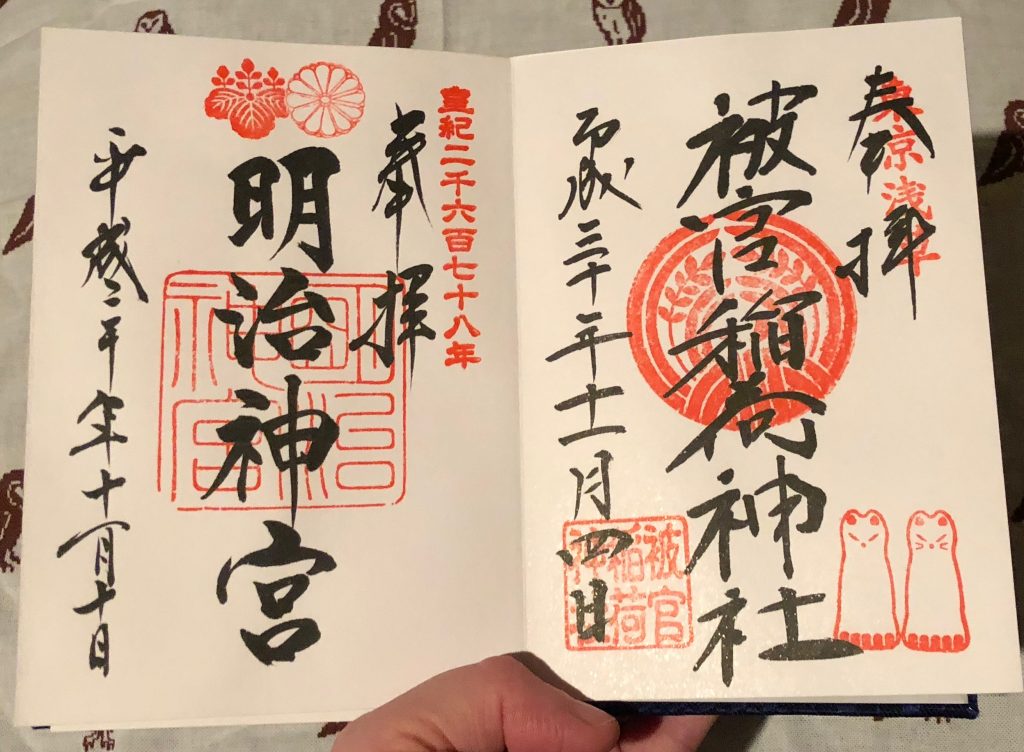 東京浅草
奉拝
被官稲荷神社
被官
稲荷
神社
平成三十年十一月四日
皇紀二千六百七十八年
奉拝
明治神宮
明治
神宮
平成三十年十一月十日